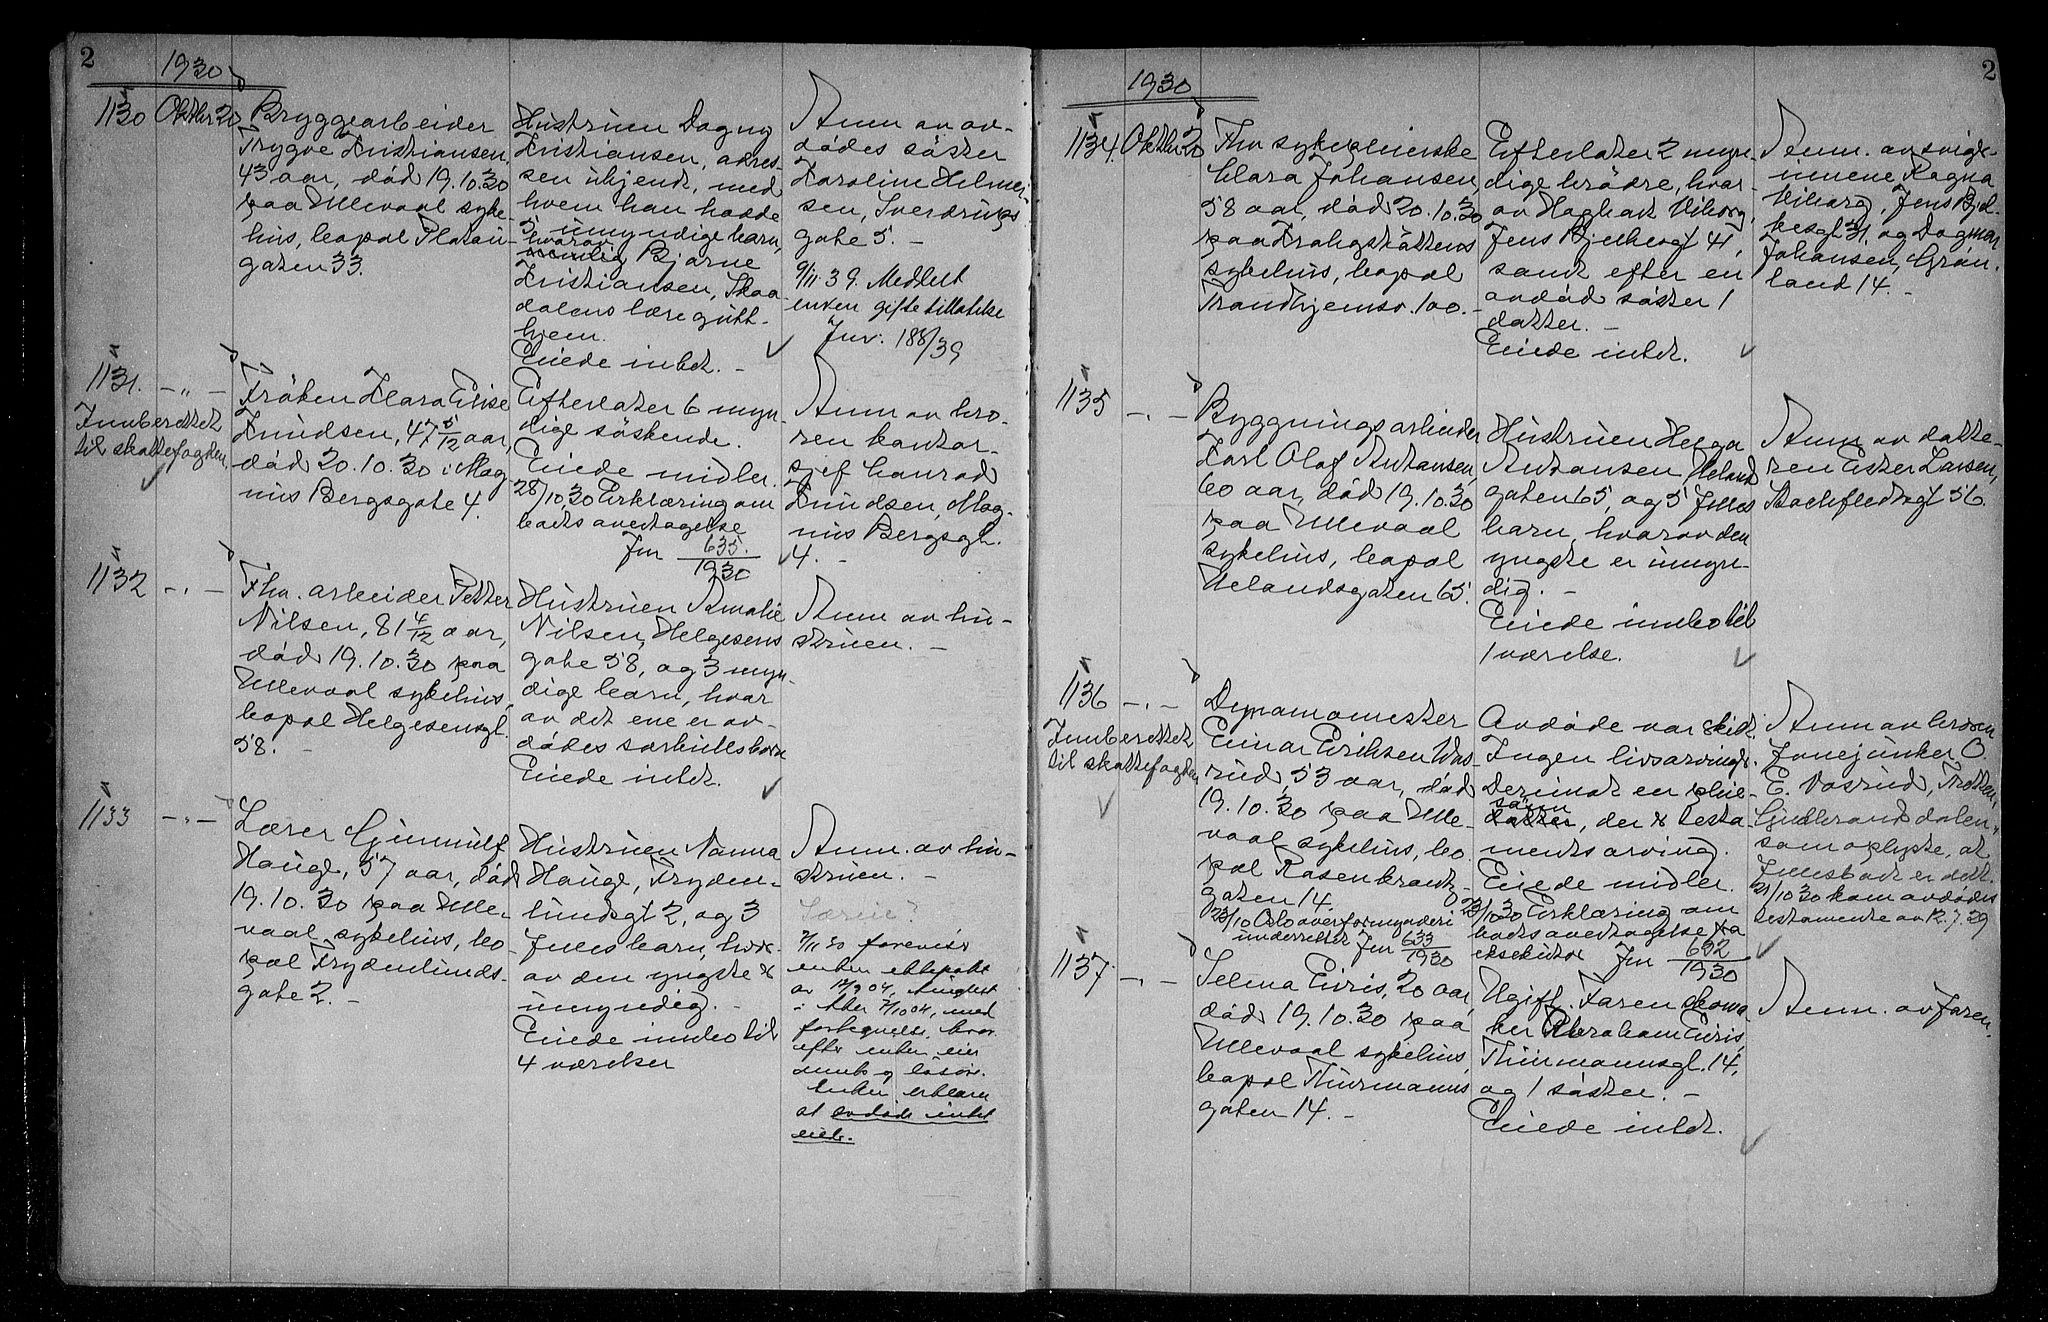 2
1930
1130 Oktbr 20
Bryggearbeider
Trygve Kristiansen,
43 aar, död 19.10.30
paa Ullevaal syke-
hus, bopæl Platou-
gaten 33.
Hustruen Dagny
Kristiansen, adres-
sen ukjendt, med
hvem han hadde
5 umyndige barn,
hvorav
nemlig Bjarne
Kristiansen, Skaa-
dalens læregutt-
hjem.
Eiede intet. -
Anm av av-
dödes söster
Karoline Helmer-
sen, Sverdrups
gate 5. -
9/11.39. Meddelt
enken giftetillatelse
Jnr. 188/39
1131. - " -
Innberettet
til skattefogden
Fröken Klara Elise
Knudsen, 47 5/12 aar,
död 20.10.30 i Mag
nus Bergsgate 4.
Efterlater 6 myn-
dige söskende.
Eiede midler.
28/10.30 Erklæring om
boets overtagelse
Jnr 635.
1930
Anm av bro-
ren kontor-
sjef Conrad
Knudsen, Mag-
nus Bergsgt.
4. -
1132 - " -
Fhv. arbeider Petter
Nilsen, 81 4/12 aar,
död 19.10.30 paa
Ullevaal sykehus,
bopæl Helgesensgt.
58. -
Hustruen Amalie
Nilsen, Helgesens
gate 58, og 3 myn-
dige barn, hvor
av det ene er av-
dödes særkullsbarn
Eiede intet.
Anm av hu-
struen. -
1133 - " -
Lærer Gunnulf
Hauge, 57 aar, död
19.10.30 paa Ulle-
vaal sykehus, bo
pæl Frydenlunds-
gate 2. -
Hustruen Nanna
Hauge, Fryden-
lundsgt 2, og 3
felles barn, hvor-
av den yngste er
umyndig. -
Eiede innbo til
4 værelser
Anm. av hu-
struen. -
Særeie?
7/11 30 foreviser
enken ektepakt
av 12/9 04, tinglest
i Aker 7/10 04, med
fortegnelse, hvor
efter enken eier
innbo og lösöre.
Enken erklærer
at avdöde intet
eide.
2
1930
1134. Oktbr 20
Fhv sykepleierske
Clara Johansen,
58 aar, död 20.10.30
paa Krohgstöttens
sykehus, bopæl
Trondhjemsv. 100. -
Efterlater 2 myn-
dige brödre, hvor-
av Hagbart Viborg,
Jens Bjelkesgt 41,
samt efter en
avdöd söster 1
datter. -
Eiede intet.
Anm. av svige-
rinnene Ragna
Viborg, Jens Bjel-
kesgt 31, og Dagmar
Johansen, Grön-
land 14. -
1135 - " -
Bygningsarbeider
Karl Olaf Antonsen,
60 aar, död 19.10.30
paa Ullevaal
sykehus, bopæl
Uelandsgaten 65.
Hustruen Helga
Antonsen Ueland
gaten 65, og 5 felles
barn, hvorav den
yngste er umyn-
dig. -
Eiede innbo til
1 værelse.
Anm av datte-
ren Ester Larsen,
Stockfledtsgt 56.
1136 - " -
Innberettet
til skattefogden
Dynamomester
Einar Eriksen Vas-
rud, 53 aar, död
19.10.30 paa Ulle-
vaal sykehus, bo
pæl Rosenkrantz-
gaten 14.
23/10 Oslo overformynderi
underrettet Jnr 633
1930
Avdöde var skilt.
Ingen livsarving.
Derimot en pleie-
sönn
datter, der er testa-
mentsarving.
Eiede midler.
23/10 30 Erklæring om
boets overtagelse fra
eksekutor Jnr 632
1930
Anm av broren
E. Vasrud, Fretten,
Gudbrandsdalen,
som oplyste, at
fellesboet er delt.
21/10 30 kom avdödes
testamente av 12.7.29
1137. - " -
Selma Eiris, 20 aar,
död 19.10.30 paa
Ullevaal sykehus,
bopæl Thurmanns
gaten 14. -
Ugift. Faren skoma
ker Abraham Eiris,
Thurmannsgt. 14,
og 1 söster. -
Eiede intet.
Anm. av faren.